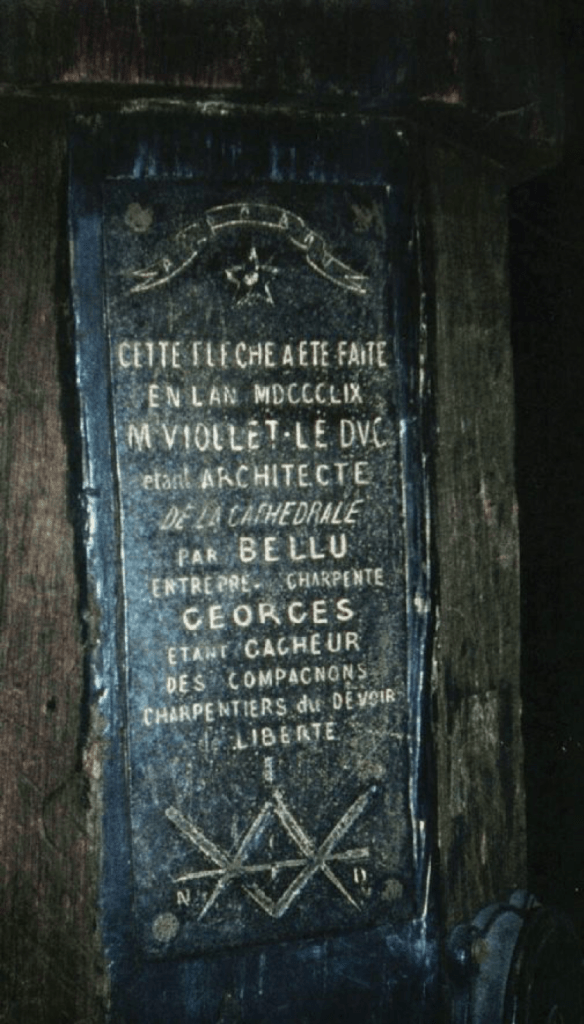 CETTE FLECHE A ETE FAITE
EN LAN MDCCCLIX
M VIOLLET-LE DVC
etant ARCHITECTE
DE LA CATHEDRALE
PAR BELLU
ENTREPRE. CHARPENTE
GEORGES
ETANT GACHEUR
DES COMPAGNONS
CHARPENTIERS du DEVOIR
LIBERTE
N D